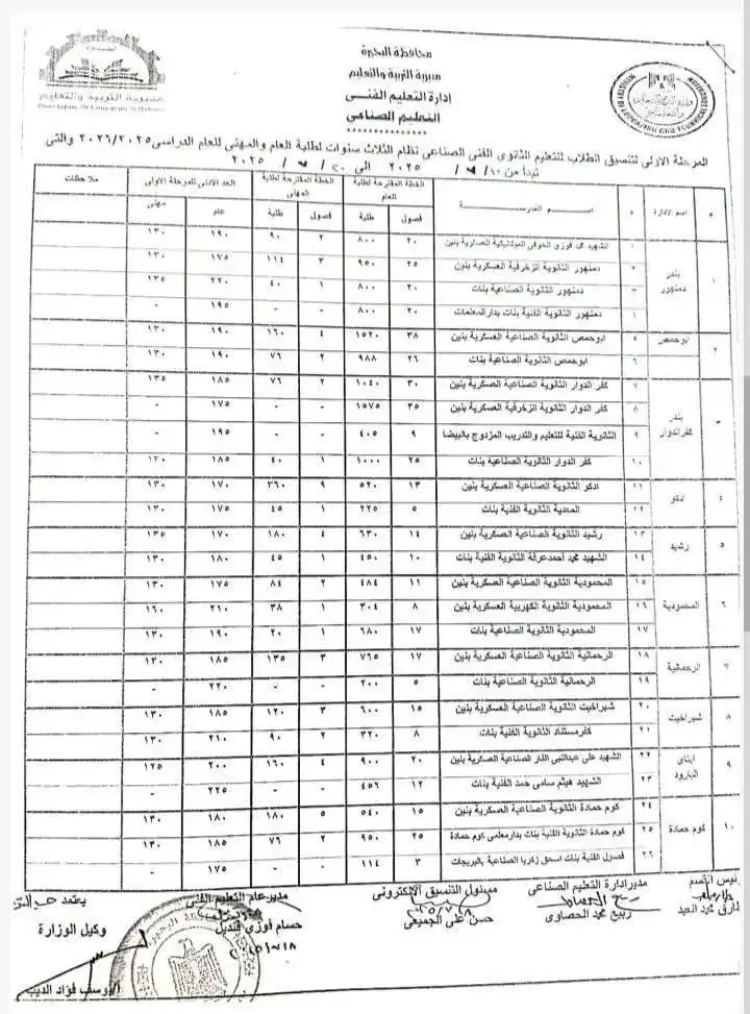 محافظة البحيرة
مديرية التربية والتعليم
إدارة التعليم الفنى
التعليم الصناعى
مديرية التربية والتعليم
المرحلة الاولى لتنسيق الطلاب للتعليم الثانوى الفنى الصناعى نظام الثلاث سنوات لطلبة العام والمهنى للعام الدراسى ٢٠٢٦/٢٠٢٥ والتى
تبدأ من ١٠ / ٧ / ٢٠٢٥ الى ٢٠ / ٧ / ٢٠٢٥
م اسم الادارة م اسم المدرسة الخطة المقترحة لطلبة العام الخطة المقترحة لطلبة المهنى الحد الادنى للمرحلة الاولى ملاحظات
فصول طلبة فصول طلبة عام مهنى
١ بندر دمنهور ١ الشهيد محمد فوزى الحوفى الميكانيكية العسكرية بنين ٢٠ ٨٠٠ ٢ ٩٠ ١٩٠ ١٣٠
٢ دمنهور الثانوية الزخرفية العسكرية بنين ٢٥ ٩٥٠ ٣ ١١٤ ١٧٥ ١٣٠
٣ دمنهور الثانوية الصناعية بنات ٢٠ ٨٠٠ ١ ٤٠ ٢٢٠ ١٣٥
٤ دمنهور الثانوية الفنية بنات بدار المعلمات ٢٠ ٨٠٠ - - ١٩٥ -
٢ ابوحمص ٥ ابوحمص الثانوية الصناعية العسكرية بنين ٣٨ ١٥٢٠ ٤ ١٦٠ ١٩٠ ١٣٠
٦ ابوحمص الثانوية الصناعية بنات ٢٦ ٩٨٨ ٢ ٧٦ ١٩٠ ١٣٠
٣ بندر كفرالدوار ٧ كفر الدوار الثانوية الصناعية العسكرية بنين ٣٠ ١٠٤٠ ٢ ٧٦ ١٨٥ ١٣٥
٨ كفر الدوار الثانوية الزخرفية العسكرية بنين ٣٥ ١٥٧٥ - - ١٧٥ -
٩ الثانوية الفنية للتعليم والتدريب المزدوج بالبيضا ٩ ٤٠٥ - - ١٩٥ -
١٠ كفر الدوار الثانوية الصناعية بنات ٢٥ ١٠٠٠ ١ ٤٠ ١٨٥ ١٣٠
٤ ادكو ١١ ادكو الثانوية الصناعية العسكرية بنين ١٣ ٥٢٠ ٩ ٣٦٠ ١٧٠ ١٣٠
١٢ المعدية الثانوية الفنية بنات ٥ ٢٢٥ ١ ٤٥ ١٧٥ ١٣٠
٥ رشيد ١٣ رشيد الثانوية الصناعية العسكرية بنين ١٤ ٦٣٠ ٤ ١٨٠ ١٧٠ ١٣٥
١٤ الشهيد محمد أحمد عرفة الثانوية الفنية بنات ١٠ ٤٥٠ ١ ٤٥ ١٨٠ ١٣٠
٦ المحمودية ١٥ المحمودية الثانوية الصناعية العسكرية بنين ١١ ٤٨٤ ٢ ٨٤ ١٧٥ ١٣٠
١٦ المحمودية الثانوية الكهربية العسكرية بنين ٨ ٣٠٤ ١ ٣٨ ٢١٠ ١٦٠
١٧ المحمودية الثانوية الصناعية بنات ١٧ ٦٨٠ ١ ٢٠ ١٩٠ ١٣٠
٧ الرحمانية ١٨ الرحمانية الثانوية الصناعية العسكرية بنين ١٧ ٧٦٥ ٣ ١٣٥ ١٨٥ ١٣٠
١٩ الرحمانية الثانوية الصناعية بنات ٥ ٢٠٠ - - ٢٢٠ -
٨ شبراخيت ٢٠ شبراخيت الثانوية الصناعية العسكرية بنين ١٥ ٦٠٠ ٣ ١٢٠ ١٨٥ ١٣٠
٢١ كفرمستناد الثانوية الفنية بنات ٨ ٣٢٠ ٢ ٩٠ ٢١٠ ١٣٠
٩ ايتاى البارود ٢٢ الشهيد على عبدالنبى الفار الصناعية العسكرية بنين ٢٠ ٩٠٠ ٤ ١٦٠ ٢٠٠ ١٢٥
٢٣ الشهيد هيثم سامى حمد الفنية بنات ١٢ ٤٥٦ - - ٢٢٥ -
١٠ كوم حمادة ٢٤ كوم حمادة الثانوية الصناعية العسكرية بنين ١٥ ٥٤٠ ٥ ١٨٠ ١٨٠ ١٣٠
٢٥ كوم حمادة الثانوية الفنية بنات بدار معلمى كوم حمادة ٢٥ ٩٥٠ ٢ ٧٦ ١٨٥ ١٣٠
٢٦ فصول الفنية بنات اسحق زكريا الصناعية بالبريجات ٣ ١١٤ - - ١٧٥ -
رئيس الأقسم مدير ادارة التعليم الصناعى مسئول التنسيق الالكترونى مدير عام التعليم الفنى يعتمد
ربيع محمد الحصاوى حسن على الجميعى حسام فوزى قنديل وكيل الوزارة
يوسف فؤاد الديب